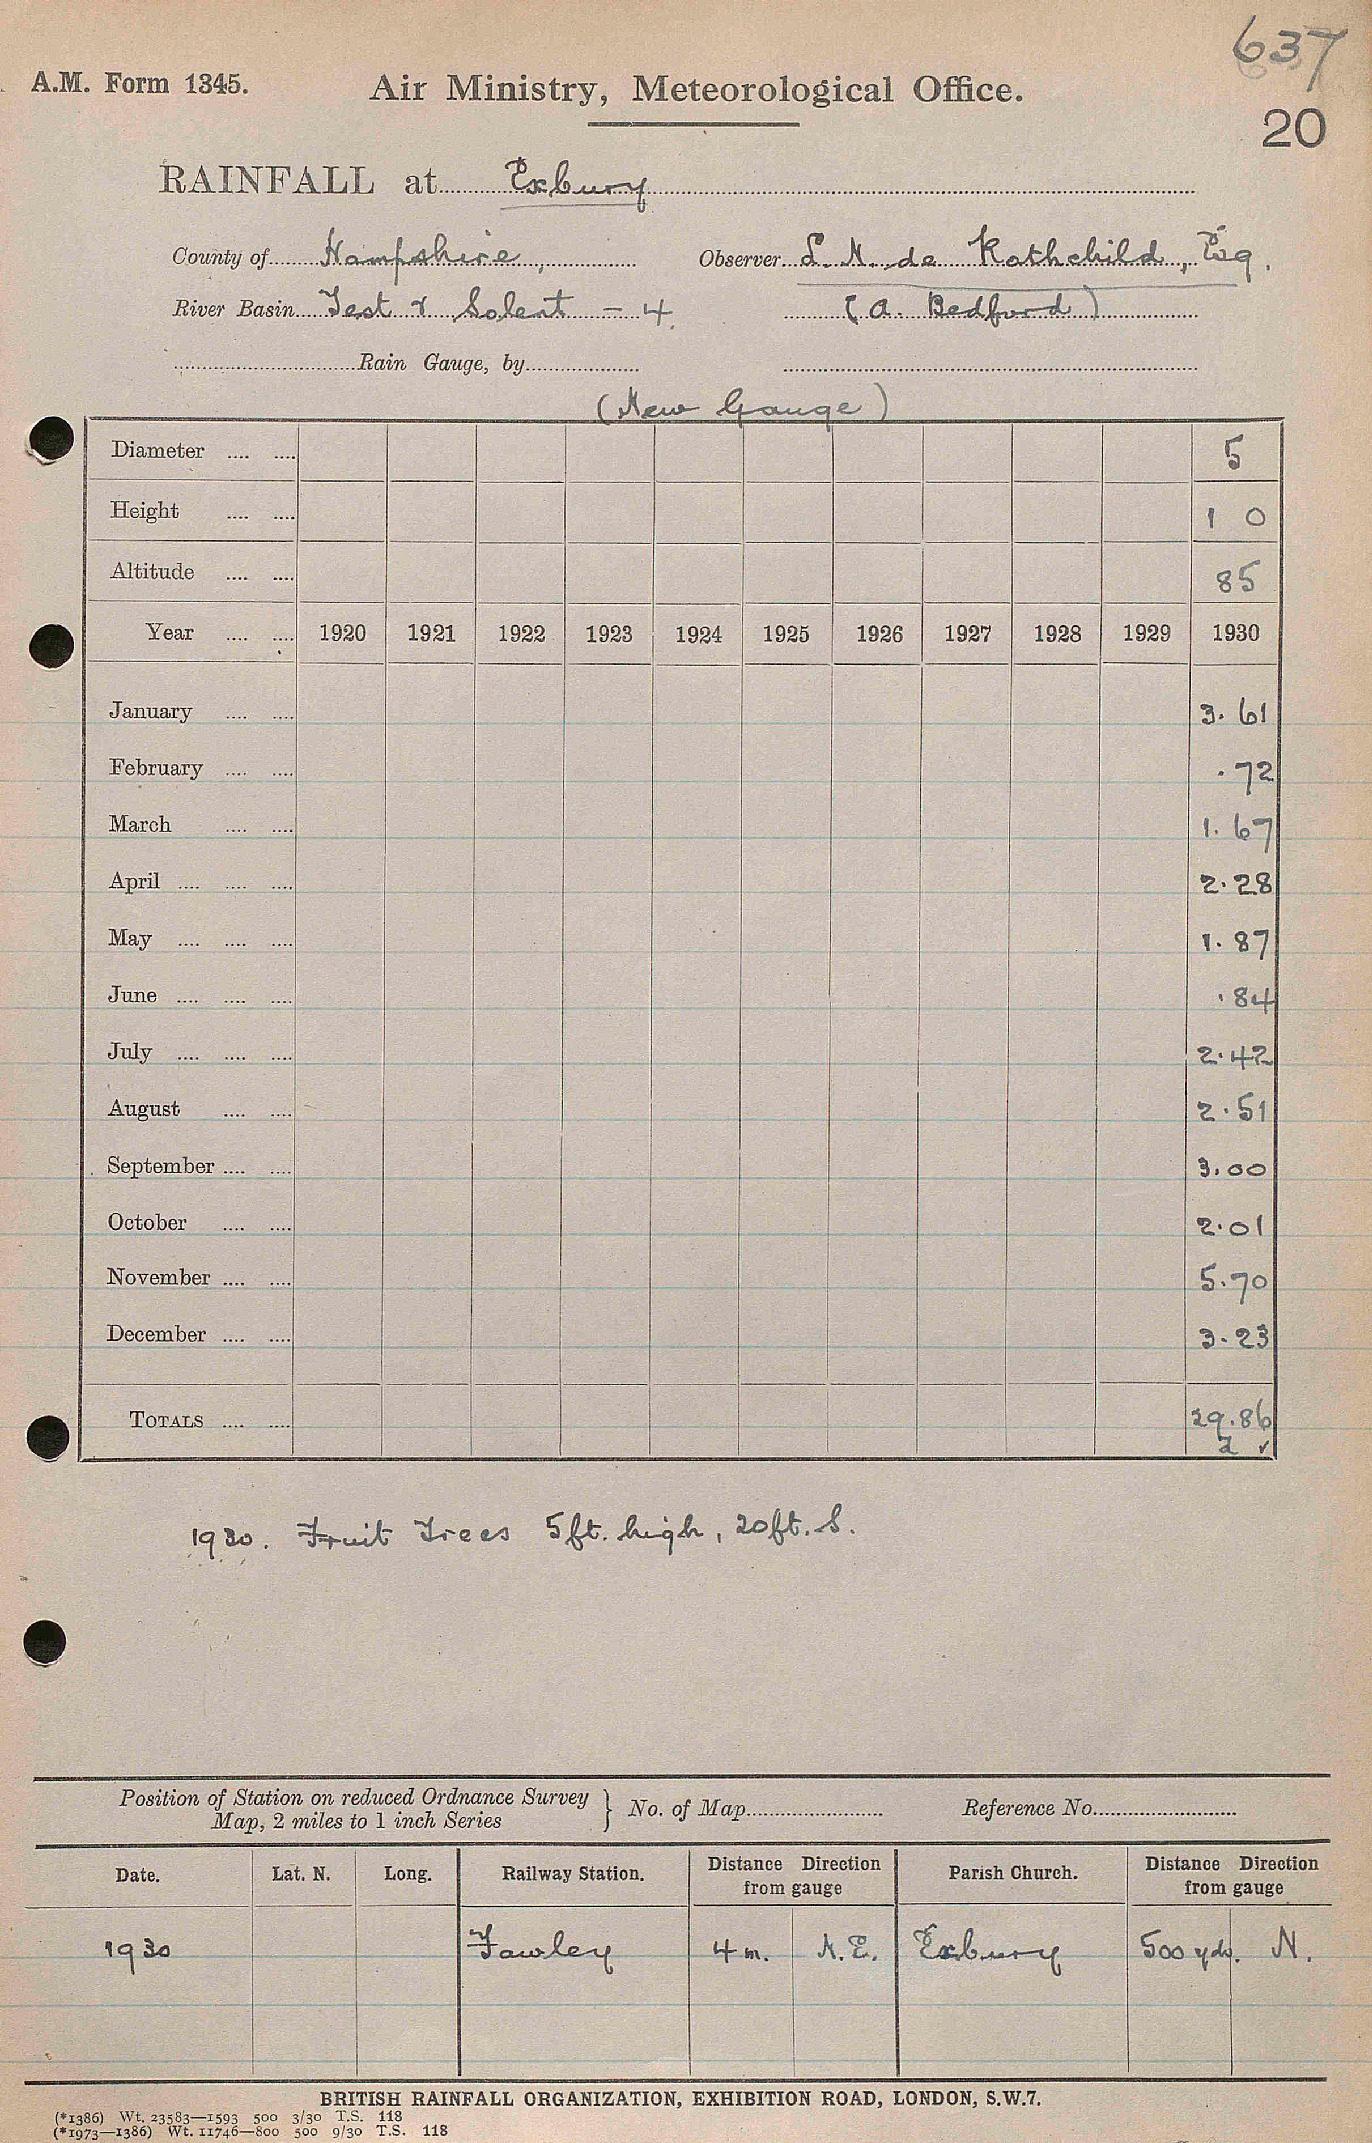 637
A.M. Form 1345. Air Ministry, Meteorological Office.
20
RAINFALL at Exbury
County of Hampshire, Observer L. N. de Rothchild, Esq.
River Basin Test & Solent - 4. (A. Bedford)
Rain Gauge, by
(New Gauge)
Diameter .... .... 5
Height .... .... 1 0
Altitude .... .... 85
Year .... .... 1920 1921 1922 1923 1924 1925 1926 1927 1928 1929 1930
January .... .... 3.61
February .... .... .72
March .... .... 1.67
April .... .... .... 2.28
May .... .... .... 1.87
June .... .... .... .84
July .... .... .... 2.42
August .... .... 2.51
September .... .... 3.00
October .... .... 2.01
November .... .... 5.70
December .... .... 3.23
TOTALS .... .... 29.86
2 ✓
1930. Fruit Trees 5ft. high, 20ft. S.
Position of Station on reduced Ordnance Survey
Map, 2 miles to 1 inch Series } No. of Map Reference No.
Date. Lat. N. Long. Railway Station. Distance Direction from gauge Parish Church. Distance Direction from gauge
1930 Fawley 4 m. N.E. Exbury 500 yds. N.
BRITISH RAINFALL ORGANIZATION, EXHIBITION ROAD, LONDON, S.W.7.
(*1386) Wt. 23583—1593 500 3/30 T.S. 118
(*1973—1386) Wt. 11746—800 500 9/30 T.S. 118